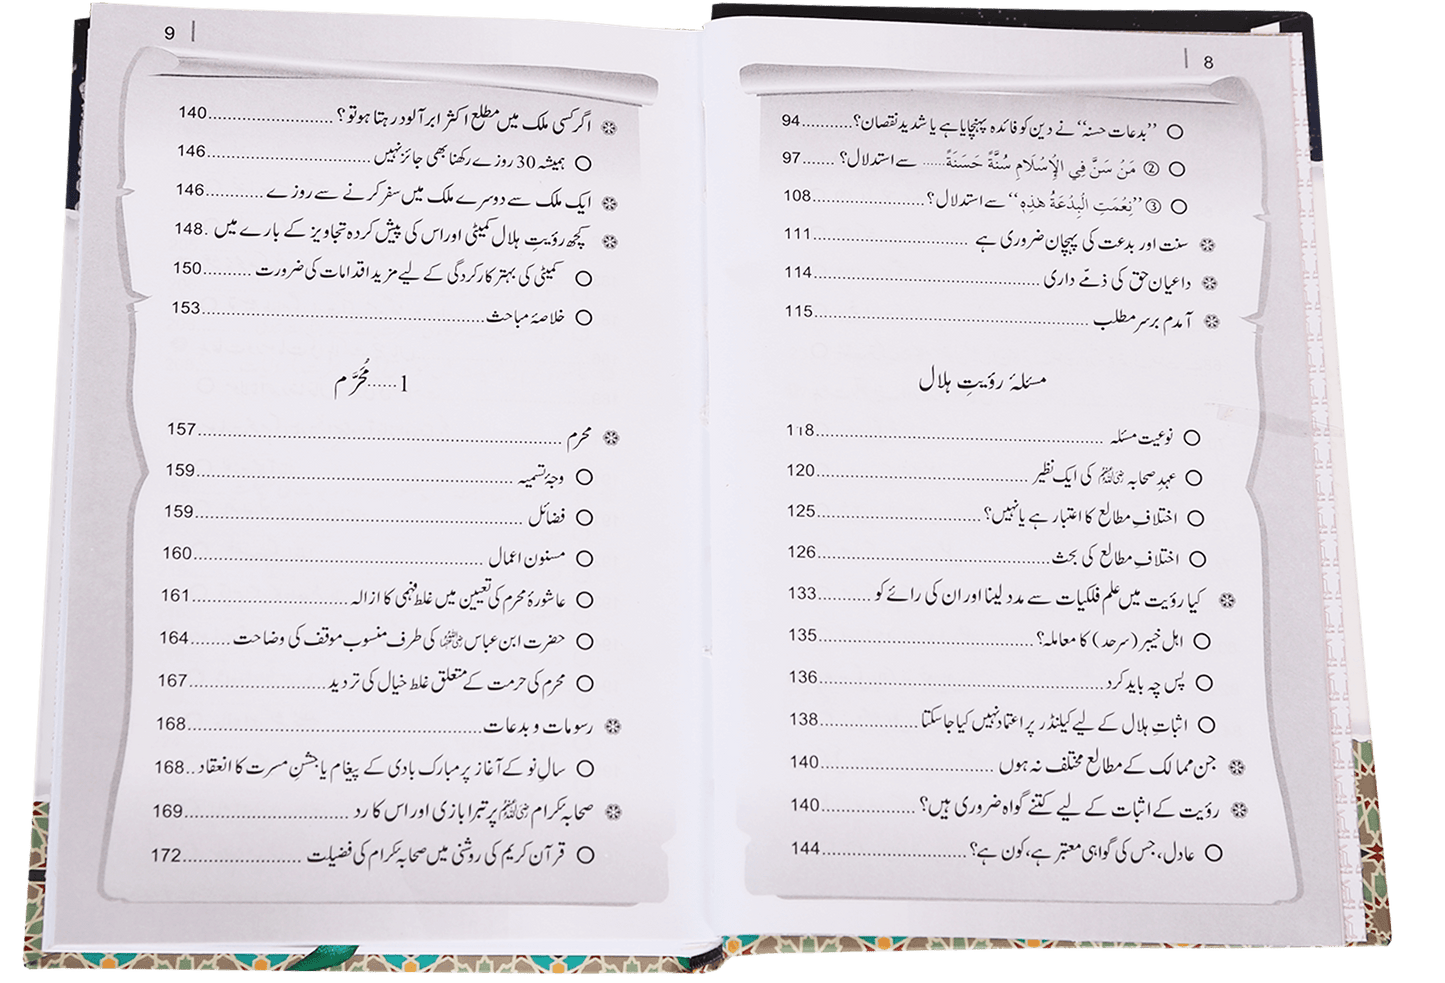 8
○ ’’بدعات حسنہ‘‘ نے دین کو فائدہ پہنچایا ہے یا شدید نقصان؟..........94
○ ② مَنْ سَنَّ فِي الْإِسْلَامِ سُنَّةً حَسَنَةً...... سے استدلال؟.......97
○ ③ ’’نِعْمَتِ الْبِدْعَةُ هٰذِهٖ‘‘ سے استدلال؟.......................108
❋ سنت اور بدعت کی پہچان ضروری ہے...............................111
❋ داعیان حق کی ذمّے داری.............................................114
❋ آمدم برسر مطلب.......................................................115
مسئلۂ رؤیتِ ہلال
○ نوعیت مسئلہ..........................................................118
○ عہدِ صحابہ رضی اللہ عنہم کی ایک نظیر..........................................120
○ اختلافِ مطالع کا اعتبار ہے یا نہیں؟.................................125
○ اختلافِ مطالع کی بحث..............................................126
❋ کیا رؤیت میں علم فلکیات سے مدد لینا اور ان کی رائے کو...........133
○ اہل خیبر (سرحد) کا معاملہ؟...........................................135
○ پس چہ باید کرد........................................................136
○ اثباتِ ہلال کے لیے کیلنڈر پر اعتماد نہیں کیا جاسکتا....................138
❋ جن ممالک کے مطالع مختلف نہ ہوں.................................140
❋ رؤیت کے اثبات کے لیے کتنے گواہ ضروری ہیں؟...................140
○ عادل، جس کی گواہی معتبر ہے، کون ہے؟............................144
9
❋ اگر کسی ملک میں مطلع اکثر ابر آلود رہتا ہو تو؟.......................140
○ ہمیشہ 30 روزے رکھنا بھی جائز نہیں................................146
❋ ایک ملک سے دوسرے ملک میں سفر کرنے سے روزے............146
❋ کچھ رؤیتِ ہلال کمیٹی اور اس کی پیش کردہ تجاویز کے بارے میں .148
○ کمیٹی کی بہتر کارکردگی کے لیے مزید اقدامات کی ضرورت..........150
○ خلاصۂ مباحث........................................................153
1......مُحَرَّم
❋ محرم...................................................................157
○ وجۂ تسمیہ.............................................................159
○ فضائل.................................................................159
○ مسنون اعمال..........................................................160
○ عاشورۂ محرم کی تعیین میں غلط فہمی کا ازالہ...........................161
○ حضرت ابن عباس رضی اللہ عنہما کی طرف منسوب موقف کی وضاحت........164
○ محرم کی حرمت کے متعلق غلط خیال کی تردید........................167
❋ رسومات و بدعات.....................................................168
○ سالِ نو کے آغاز پر مبارک بادی کے پیغام یا جشنِ مسرت کا انعقاد..168
❋ صحابۂ کرام رضی اللہ عنہم پر تبرا بازی اور اس کا رد..............................169
○ قرآن کریم کی روشنی میں صحابۂ کرام کی فضیلت.....................172